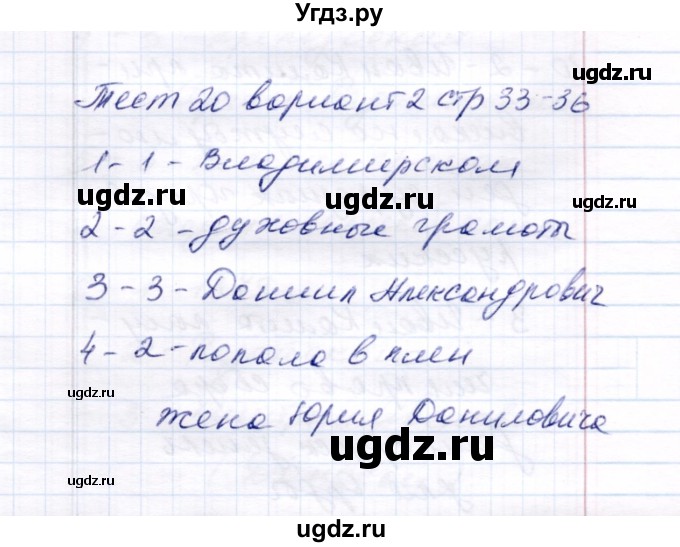 Угдз.ру
Тест 20 вариант 2 стр 33-36
ugdz.ru
1 - 1 - Владимирском
ugdz.ru ugdz.ru
2 - 2 - духовные грамоты
3 - 3 - Даниил Александрович
ugdz.ru
4 - 2 - попала в плен
ugdz.ru
жена Юрия Даниловича
ugdz.ru
ugdz.ru
ugdz.ru